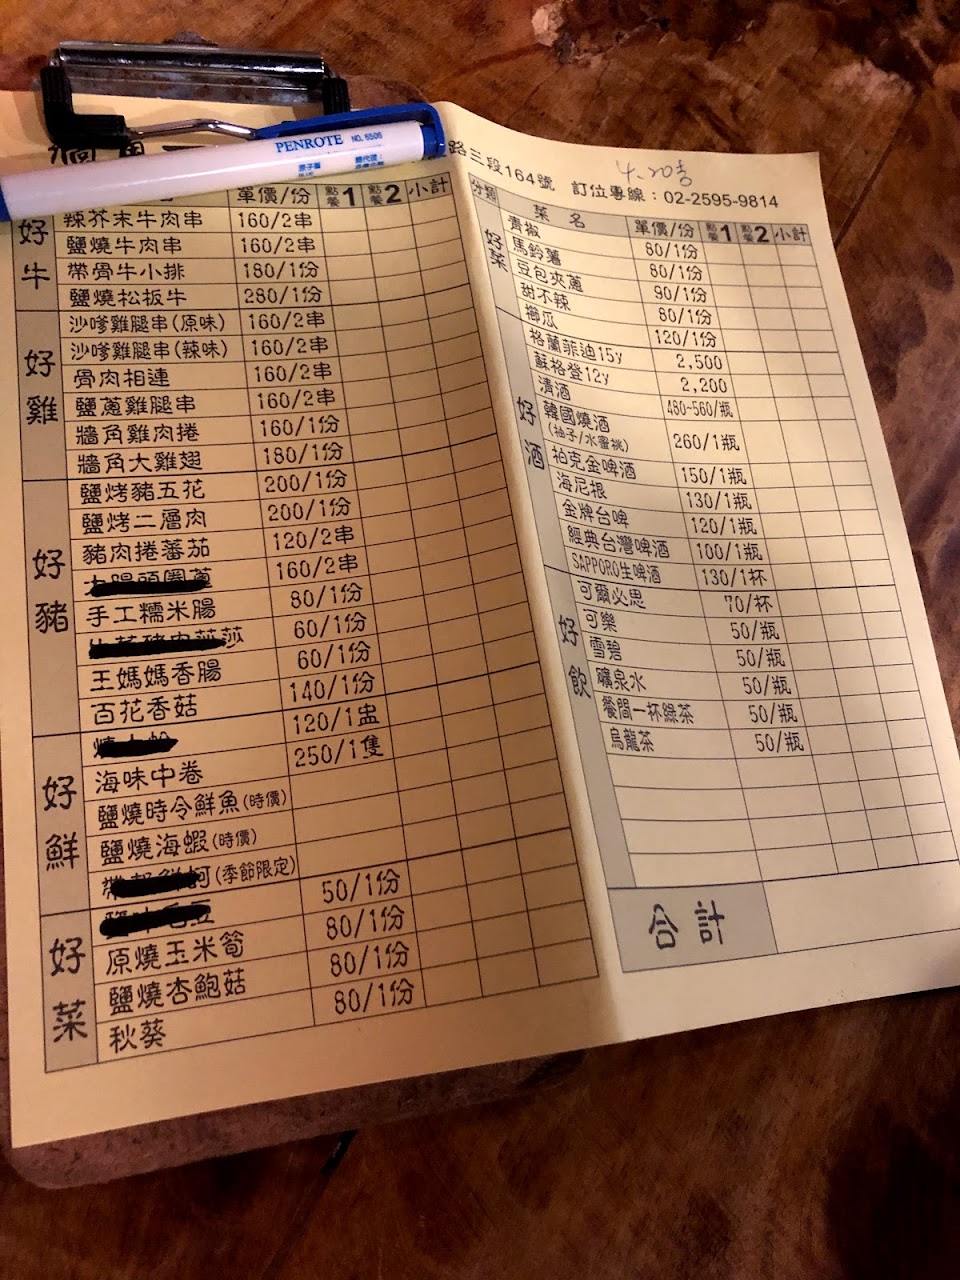 PENROTE NO. 6506
路三段164號 訂位專線：02-2595-9814
單價/份 點餐1 點餐2 小計
好牛
辣芥末牛肉串 160/2串
鹽燒牛肉串 160/2串
帶骨牛小排 180/1份
鹽燒松板牛 280/1份
好雞
沙嗲雞腿串(原味) 160/2串
沙嗲雞腿串(辣味) 160/2串
骨肉相連 160/2串
鹽蔥雞腿串 160/2串
牆角雞肉捲 160/1份
牆角大雞翅 180/1份
好豬
鹽烤豬五花 200/1份
鹽烤二層肉 200/1份
豬肉捲蕃茄 120/2串
160/2串
手工糯米腸 80/1份
莎 60/1份
王媽媽香腸 60/1份
百花香菇 140/1份
好鮮
120/1盅
海味中卷 250/1隻
鹽燒時令鮮魚(時價)
鹽燒海蝦(時價)
(季節限定)
好菜
50/1份
原燒玉米筍 80/1份
鹽燒杏鮑菇 80/1份
秋葵 80/1份
分類 菜名 單價/份 點餐1 點餐2 小計
好菜
青椒 80/1份
馬鈴薯 80/1份
豆包夾蔥 90/1份
甜不辣 80/1份
櫛瓜 120/1份
好酒
格蘭菲迪15y 2,500
蘇格登12y 2,200
清酒 480~560/瓶
韓國燒酒 260/1瓶
(柚子/水蜜桃)
柏克金啤酒 150/1瓶
海尼根 130/1瓶
金牌台啤 120/1瓶
經典台灣啤酒 100/1瓶
SAPPORO生啤酒 130/1杯
好飲
可爾必思 70/杯
可樂 50/瓶
雪碧 50/瓶
礦泉水 50/瓶
餐間一杯綠茶 50/瓶
烏龍茶 50/瓶
合計